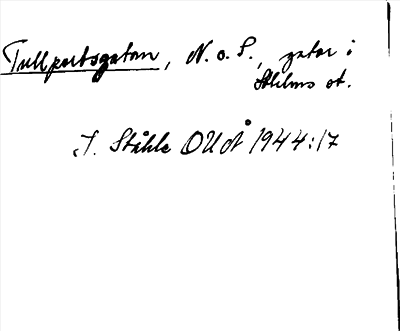 Tullportsgatan, N. o. S., gator i
Sthlms st.
J. Ståhle OUÅ 1944:17